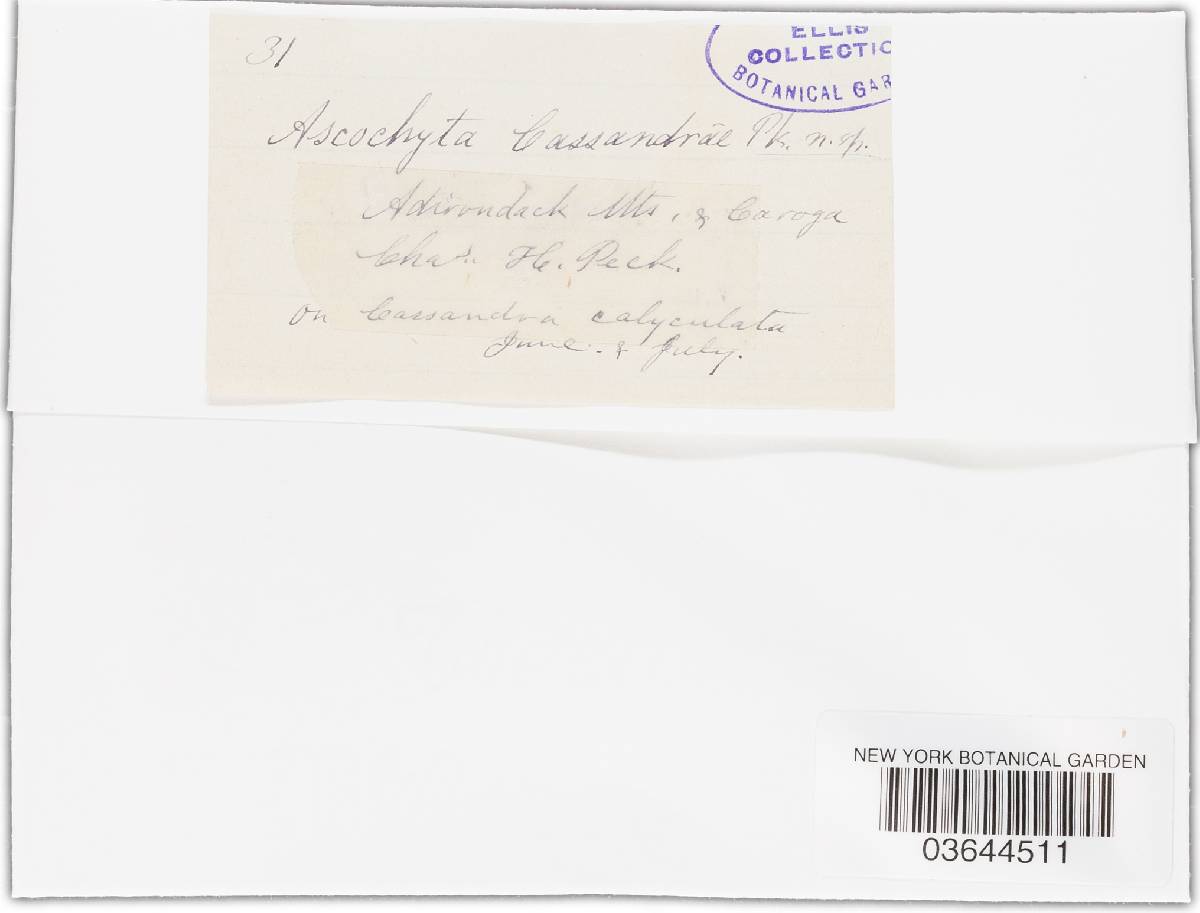 31
ELLIS
COLLECTIO
BOTANICAL GAR
Ascochyta Cassandrae Pk. n. sp.
Adirondack Mts, & Caroga
Chas. H. Peck.
on Cassandra calyculata
June. & July.
NEW YORK BOTANICAL GARDEN
03644511